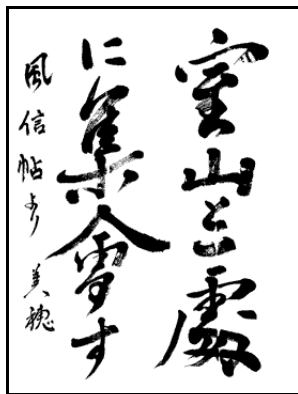 室山と一處
に集會す
風信帖より 美穂